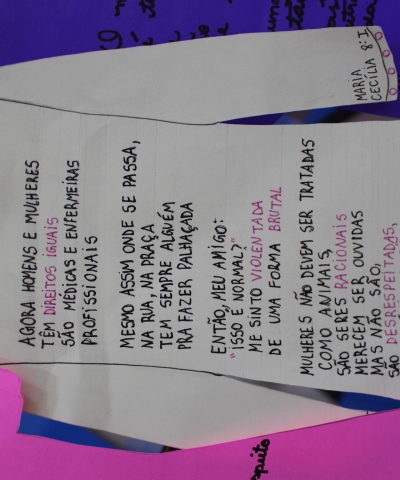 AGORA HOMENS E MULHERES
TÊM DIREITOS IGUAIS
SÃO MÉDICAS E ENFERMEIRAS
PROFISSIONAIS
MESMO ASSIM ONDE SE PASSA,
NA RUA, NA PRAÇA
TEM SEMPRE ALGUÉM
PRA FAZER PALHAÇADA
ENTÃO, MEU AMIGO:
"ISSO É NORMAL?"
ME SINTO VIOLENTADA
DE UMA FORMA BRUTAL
MULHERES NÃO DEVEM SER TRATADAS
COMO ANIMAIS,
SÃO SERES RACIONAIS
MERECEM SER OUVIDAS
MAS NÃO SÃO,
SÃO DESRESPEITADAS,
MARIA
CECÍLIA 8:I